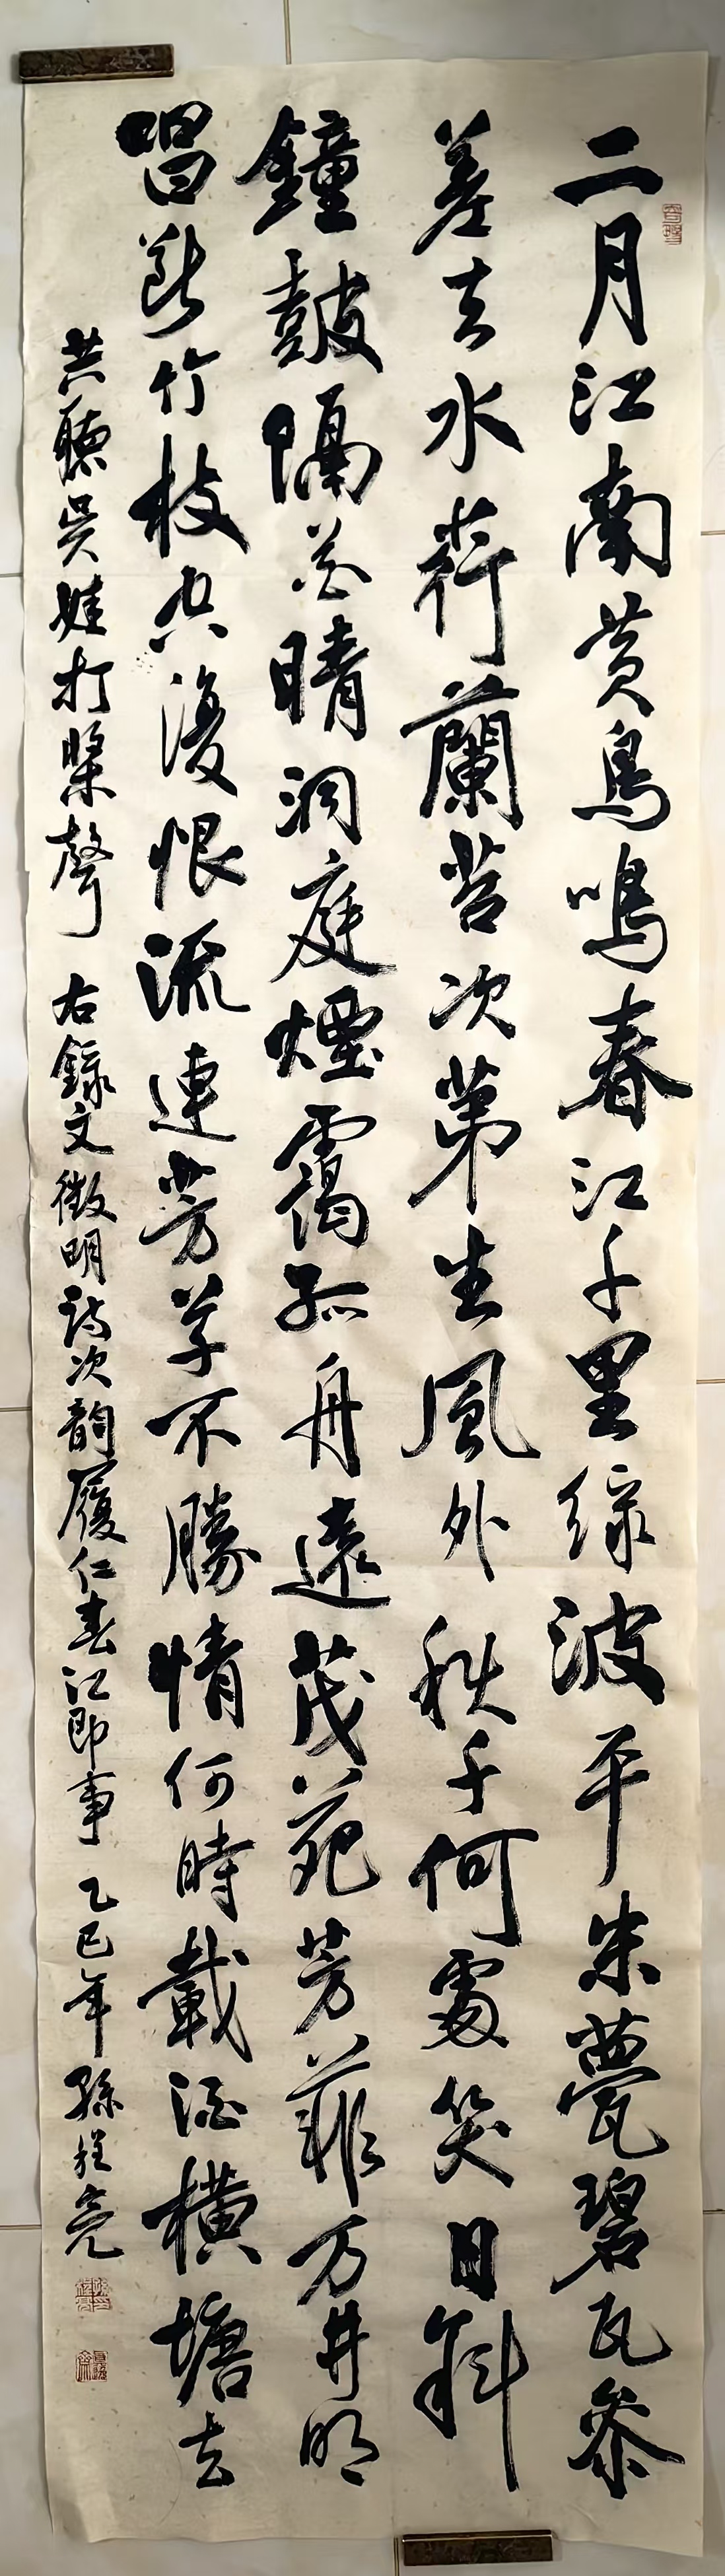 二月江南黃鳥鳴春江千里綠波平朱甍碧瓦參
差去水荇蘭苕次第生風外秋千何處笑日斜
鐘鼓隔花晴洞庭煙靄孤舟遠茂苑芳菲万井明
唱斷竹枝空復恨流連芳草不勝情何時載酒橫塘去
共聽吳娃打槳聲 右錄文徵明詩次韻履仁春江即事 乙巳年 孫 亮